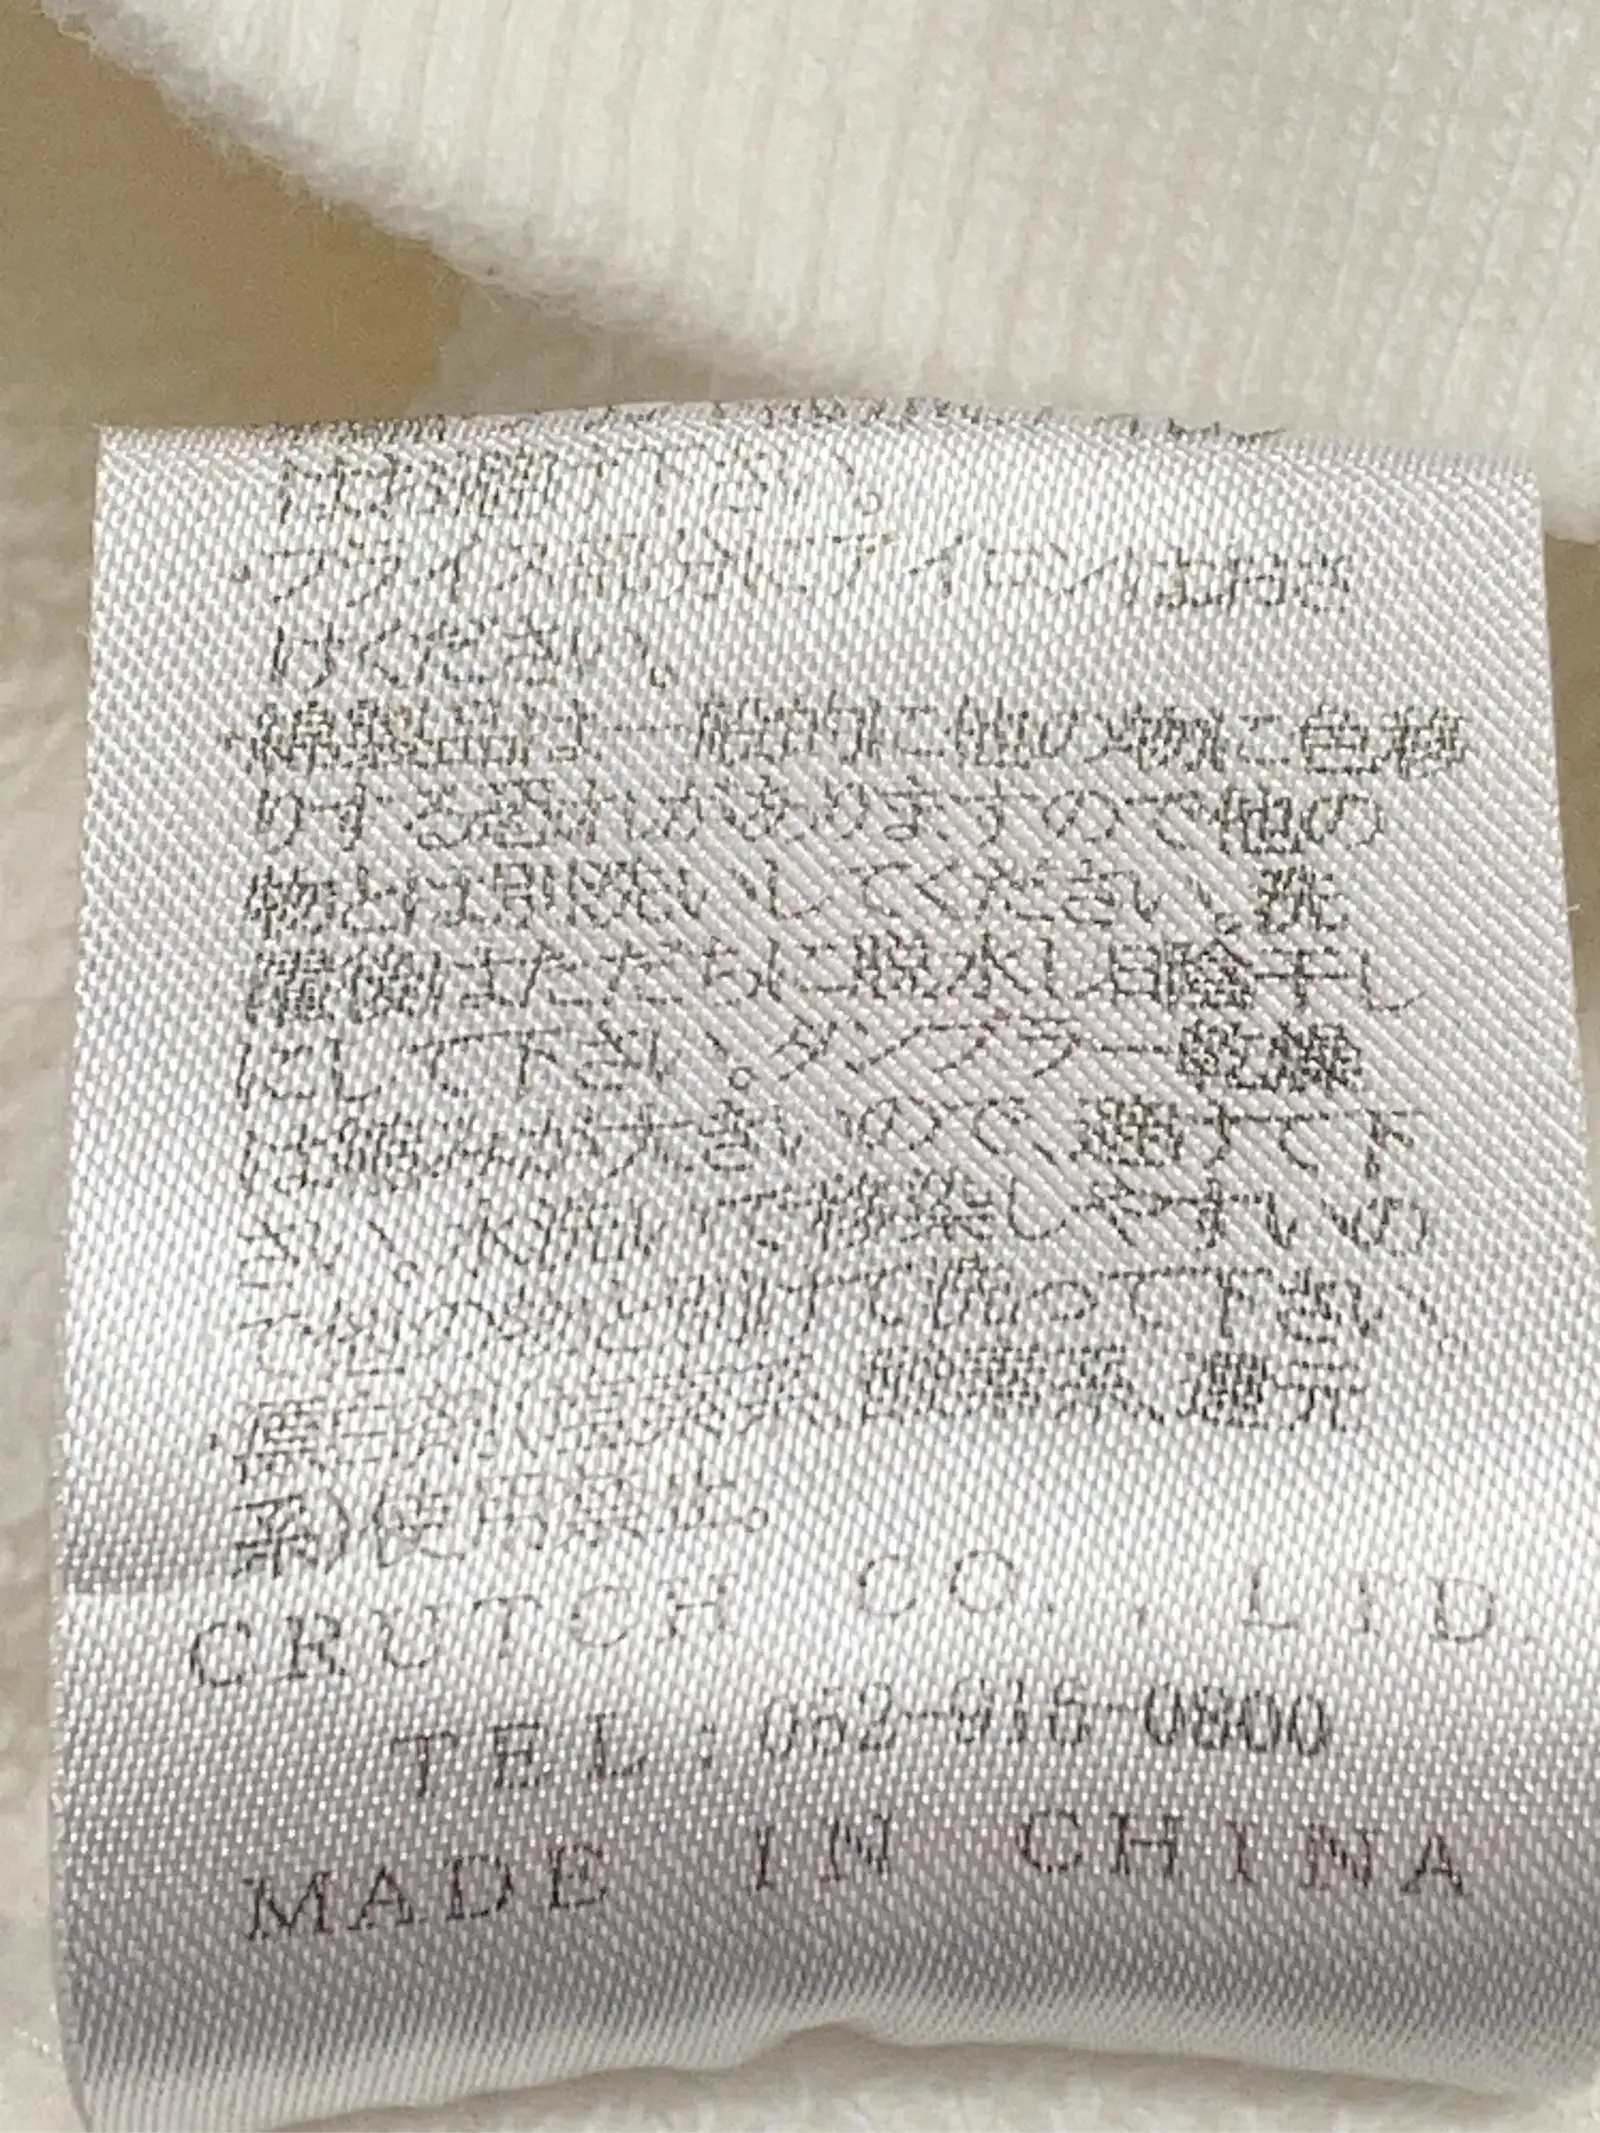 はお避け下さい。
・フライス部分にアイロンはおかさ
けください。
・綿製品は一般的に他の物に色移
りする恐れがありますので他の
物とは別洗いしてください。洗
濯後はただちに脱水し日陰干し
にして下さい。タンブラー乾燥
は縮みが大きいので、避けて下
さい。水洗いで移染しやすいの
で他の物と分けて洗って下さい。
・漂白剤(塩素系、酸素系、還元
系)使用禁止。
CRUTCH CO., LTD.
TEL:052-916-0800
MADE IN CHINA